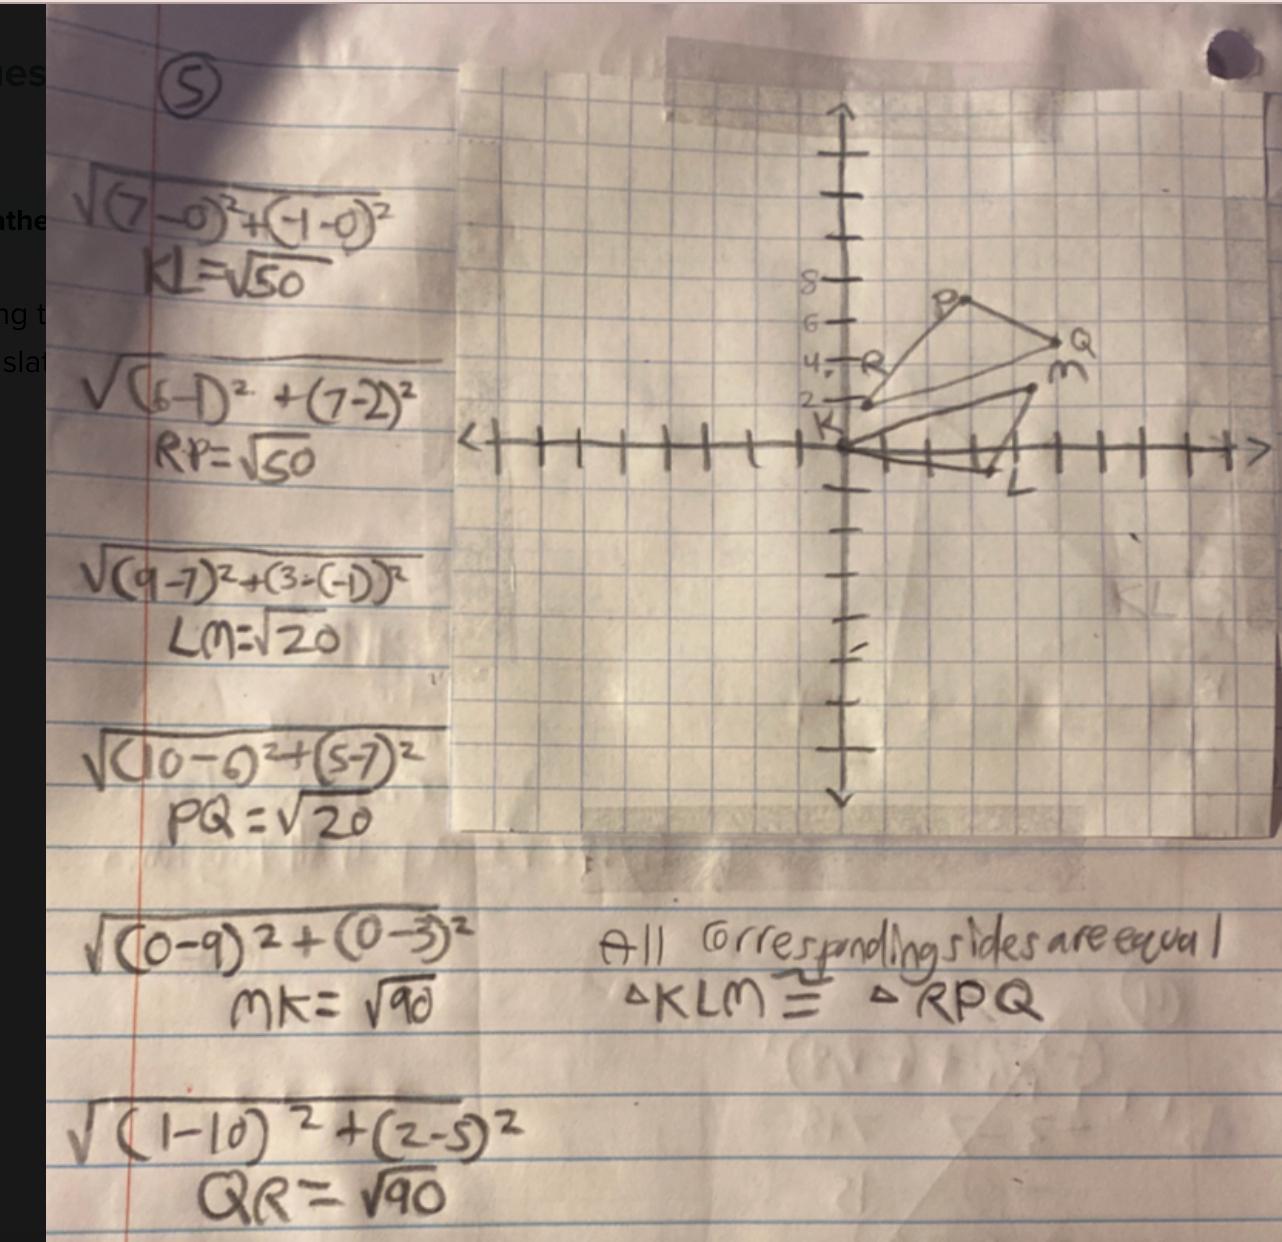 es
the
ng t
slat
5
√(7-0)²+(-1-0)²
KL=√50
√(6-1)² +(7-2)²
RP=√50
√(9-7)²+(3-(-1))²
LM=√20
√(10-6)²+(5-7)²
PQ=√20
√(0-9)²+(0-3)²
MK=√90
√(1-10)²+(2-5)²
QR=√90
8
6
4
2
P
Q
R
M
K
L
All corresponding sides are equal
△KLM ≅ △RPQ